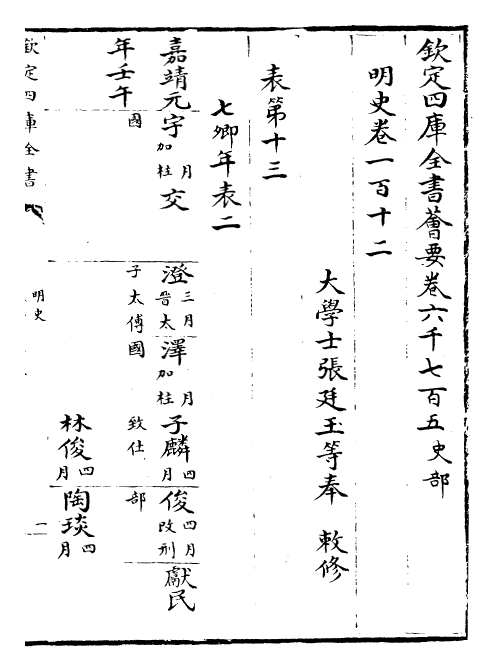 欽定四庫全書薈要卷六千七百五 史部
明史卷一百十二
大學士張廷玉等奉 敕修
表第十三
七卿年表二
嘉靖元宇月加柱交澄三月晉太澤月加柱子麟四月俊四月改刑獻民
年壬午國子太傅國致仕部
林俊四月陶琰四月
欽定四庫全書
明史
一